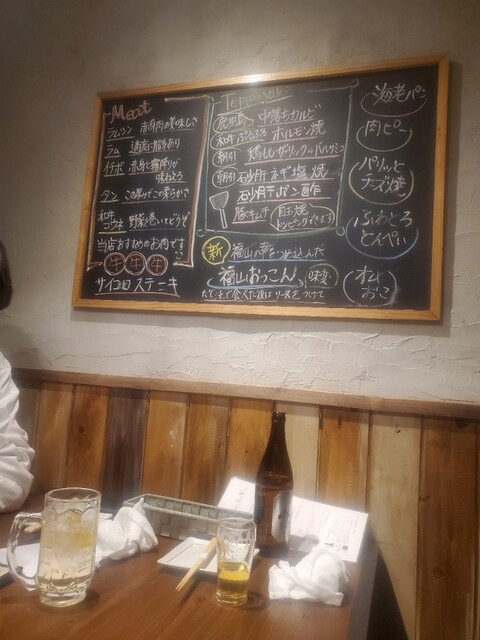 Meat
ラムシン 赤身肉の美味しさ
ラム 適度に脂あり
イチボ 赤身と霜降りが
味わえる
タン この厚みでこの柔らかさ
和牛
コウネ 野菜を巻いてどうぞ
当店おすすめのお肉です
牛 牛 牛
サイコロステーキ
Teppanyaki
鹿児島 中落ちカルビ
和牛ぷるぷる ホルモン焼
朝引
朝引 砂肝ネギ塩焼
砂肝チヂポン酢
豚キムチ 目玉焼
トッピングできます
新 福山の夢をつめ込んだ
福山おっこん 喫変
海老パン
肉ピー
パリッと
チーズ焼
ふわとろ
とんぺい
オム
おこ